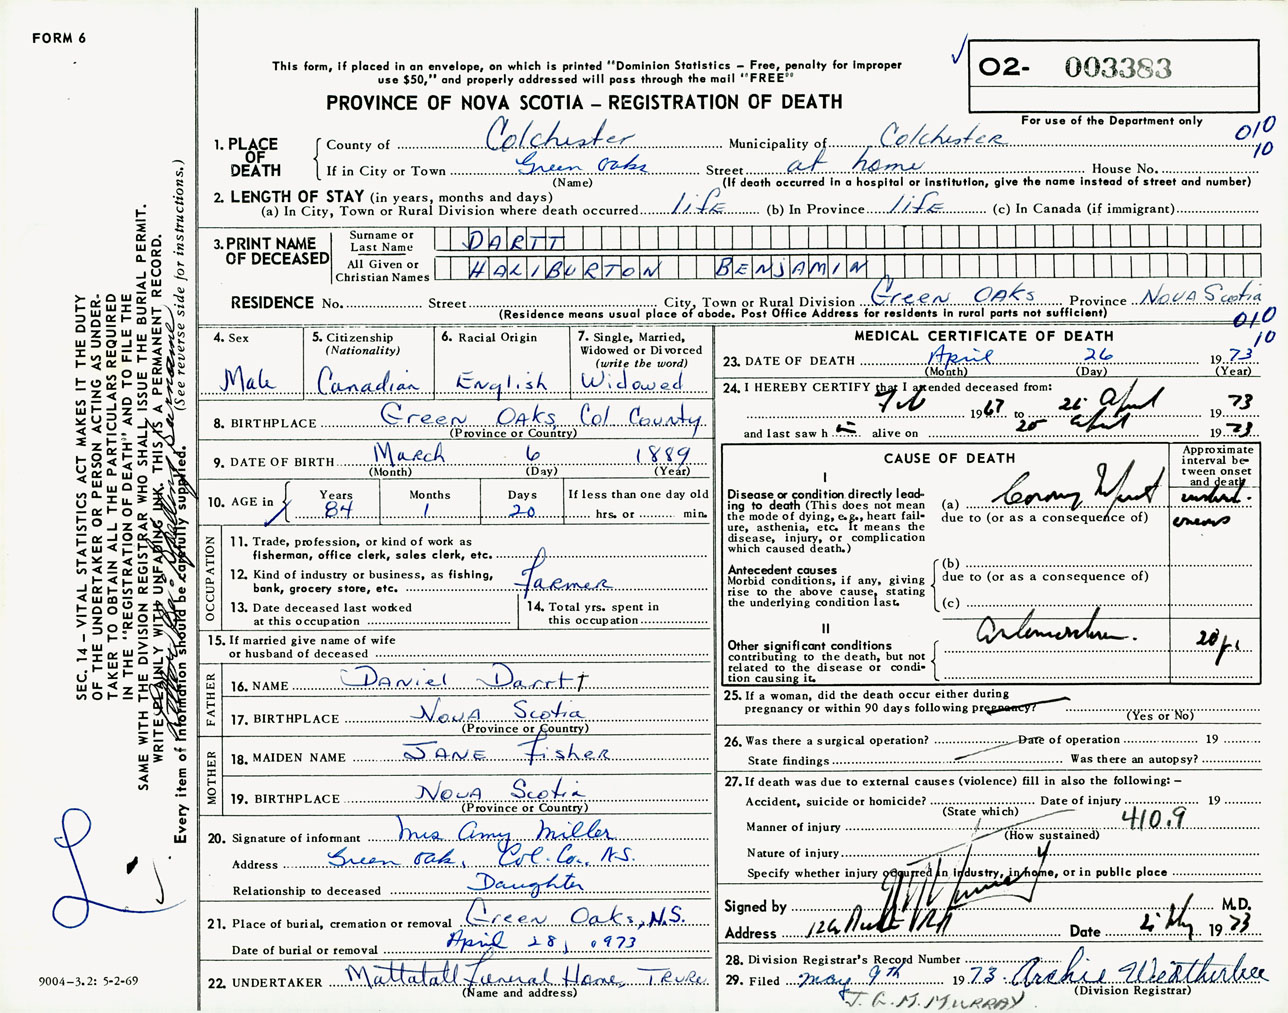 FORM 6
This form, if placed in an envelope, on which is printed "Dominion Statistics – Free, penalty for improper
use $50," and properly addressed will pass through the mail "FREE"
02- 003383
For use of the Department only
PROVINCE OF NOVA SCOTIA – REGISTRATION OF DEATH
010
10
1. PLACE OF DEATH
County of Colchester Municipality of Colchester
If in City or Town Green Oaks Street at home House No.
(Name) (If death occurred in a hospital or institution, give the name instead of street and number)
2. LENGTH OF STAY (in years, months and days)
(a) In City, Town or Rural Division where death occurred life (b) In Province life (c) In Canada (if immigrant)
3. PRINT NAME OF DECEASED
Surname or Last Name DARTT
All Given or Christian Names HALIBURTON BENJAMIN
RESIDENCE No. Street City, Town or Rural Division Green Oaks Province Nova Scotia
(Residence means usual place of abode. Post Office Address for residents in rural parts not sufficient)
010
10
4. Sex Male
5. Citizenship (Nationality) Canadian
6. Racial Origin English
7. Single, Married, Widowed or Divorced (write the word) Widowed
8. BIRTHPLACE Green Oaks, Col County
(Province or Country)
9. DATE OF BIRTH March 6 1889
(Month) (Day) (Year)
10. AGE in Years 84 Months 1 Days 20 If less than one day old hrs. or min.
OCCUPATION
11. Trade, profession, or kind of work as
fisherman, office clerk, sales clerk, etc.
12. Kind of industry or business, as fishing,
bank, grocery store, etc. Farmer
13. Date deceased last worked
at this occupation
14. Total yrs. spent in
this occupation
15. If married give name of wife
or husband of deceased
FATHER
16. NAME Daniel Dartt
17. BIRTHPLACE Nova Scotia
(Province or Country)
MOTHER
18. MAIDEN NAME Jane Fisher
19. BIRTHPLACE Nova Scotia
(Province or Country)
20. Signature of informant Mrs Amy Miller
Address Green Oak, Col. Co., N.S.
Relationship to deceased Daughter
21. Place of burial, cremation or removal Green Oaks, N.S.
Date of burial or removal April 28, 1973
22. UNDERTAKER Mattatall Funeral Home, Truro
(Name and address)
MEDICAL CERTIFICATE OF DEATH
23. DATE OF DEATH April 26 1973
(Month) (Day) (Year)
24. I HEREBY CERTIFY that I attended deceased from:
Feb 1967 to 26 April 1973
and last saw h alive on 25 April 1973
CAUSE OF DEATH
Approximate interval between onset and death
I
Disease or condition directly leading
to death (This does not mean
the mode of dying, e.g., heart failure,
asthenia, etc. It means the
disease, injury, or complication
which caused death.)
(a)
due to (or as a consequence of)
(b)
due to (or as a consequence of)
(c)
Antecedent causes
Morbid conditions, if any, giving
rise to the above cause, stating
the underlying condition last.
II
Other significant conditions
contributing to the death, but not
related to the disease or condition
causing it.
20
25. If a woman, did the death occur either during
pregnancy or within 90 days following pregnancy?
(Yes or No)
26. Was there a surgical operation? Date of operation 19
State findings Was there an autopsy?
27. If death was due to external causes (violence) fill in also the following: –
Accident, suicide or homicide? Date of injury 19
(State which)
Manner of injury 410.9
(How sustained)
Nature of injury
Specify whether injury occurred in industry, in home, or in public place
Signed by M.D.
Address Date 2 May 1973
28. Division Registrar's Record Number
29. Filed May 9th 1973 Archie Weatherbee
(Division Registrar)
J. G. M. MURRAY
SEC. 14 – VITAL STATISTICS ACT MAKES IT THE DUTY
OF THE UNDERTAKER OR PERSON ACTING AS UNDERTAKER
TO OBTAIN ALL THE PARTICULARS REQUIRED
IN THE "REGISTRATION OF DEATH" AND TO FILE THE
SAME WITH THE DIVISION REGISTRAR WHO SHALL ISSUE THE BURIAL PERMIT.
WRITE PLAINLY WITH UNFADING INK. THIS IS A PERMANENT RECORD.
Every item of information should be carefully supplied. (See reverse side for instructions.)
9004-3.2: 5-2-69